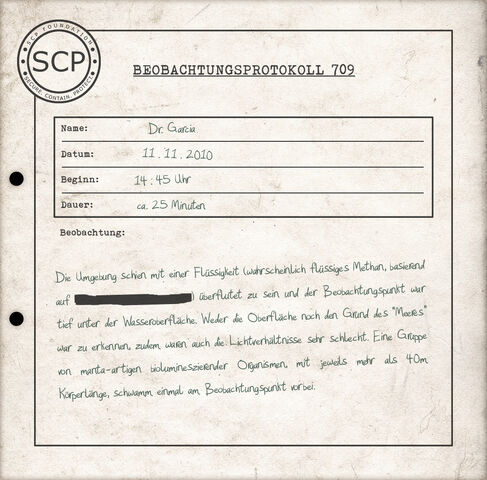 SCP FOUNDATION
SCP
SECURE. CONTAIN. PROTECT.
BEOBACHTUNGSPROTOKOLL 709
Name: Dr. Garcia
Datum: 11.11.2010
Beginn: 14:45 Uhr
Dauer: ca. 25 Minuten
Beobachtung:
Die Umgebung schien mit einer Flüssigkeit (wahrscheinlich flüssiges Methan, basierend
auf ) überflutet zu sein und der Beobachtungspunkt war
tief unter der Wasseroberfläche. Weder die Oberfläche noch den Grund des "Meeres"
war zu erkennen, zudem waren auch die Lichtverhältnisse sehr schlecht. Eine Gruppe
von manta-artigen biolumineszierender Organismen, mit jeweils mehr als 40m
Körperlänge, schwamm einmal am Beobachtungspunkt vorbei.